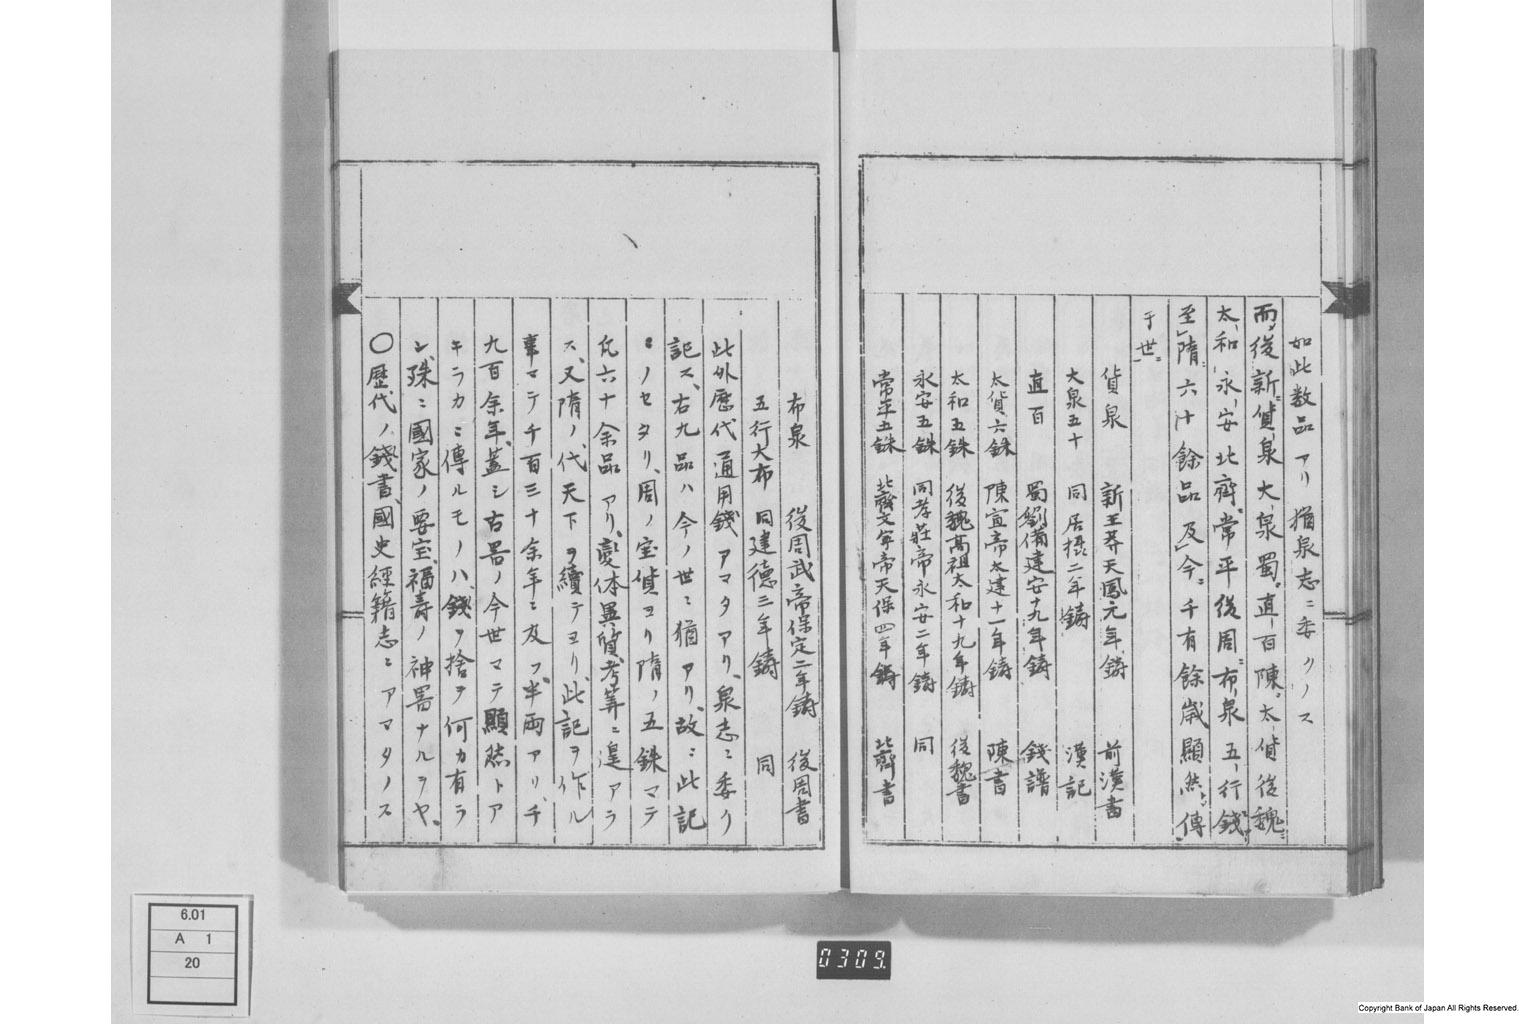 如此数品アリ猶泉志ニ委クノス
而後新貨泉大泉蜀直百陳太貨後魏
太和永安北齊常平後周布泉五行錢
至隋六十餘品及今千有餘歳顯然傳
于世
貨泉　新王莽天鳳元年鋳　前漢書
大泉五十　同居摂二年鋳　漢記
直百　蜀劉備建安十九年鋳　錢譜
太貨六銖　陳宣帝太建十一年鋳　陳書
太和五銖　後魏高祖太和十九年鋳　後魏書
永安五銖　同孝莊帝永安二年鋳　同
常平五銖　北齊文宣帝天保四年鋳　北齊書
布泉　後周武帝保定二年鋳　後周書
五行大布　同建德三年鋳　同
此外歴代通用錢アマタアリ泉志ニ委ク
記ス、右九品ハ今ノ世ニ猶アリ、故ニ此記
ニノセタリ、周ノ宝貨ヨリ隋ノ五銖マテ
凢六十余品アリ、変体異質考筭ニ遑アラ
ス、又隋ノ代天下ヲ續テヨリ、此記ヲ作ル
事マテ千百三十余年ニ及フ、半両アリ、千
九百余年、蓋シ古噐ノ今世マテ顯然トア
キラカニ傳ルモノハ錢ヲ捨ヲ何カ有ラ
ン、殊ニ國家ノ要宝、福寿ノ神噐ナルヲヤ、
〇歴代ノ錢書、國史經籍志ニアマタノス
6.01
A 1
20
0309.
Copyright Bank of Japan All Rights Reserved.